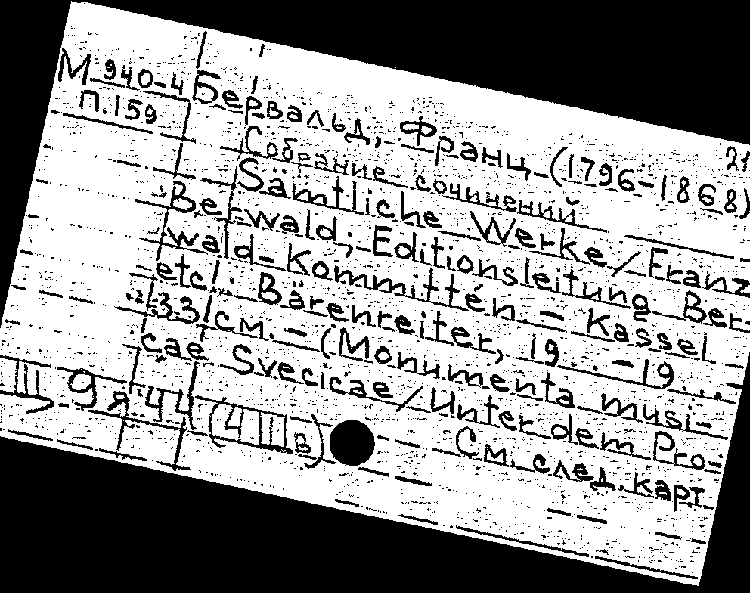 21
М 940-4 Бервальд, Франц (1796-1868)
П.159
Собрание сочинений
Sämtliche Werke / Franz
Berwald; Editionsleitung Ber-
wald-Kommittén. - Kassel
etc.: Bärenreiter, 19...-19... -
33 см. - (Monumenta musi-
cae Svecicae / Unter dem Pro-
См. след. карт
III 9я44 (4 III в)